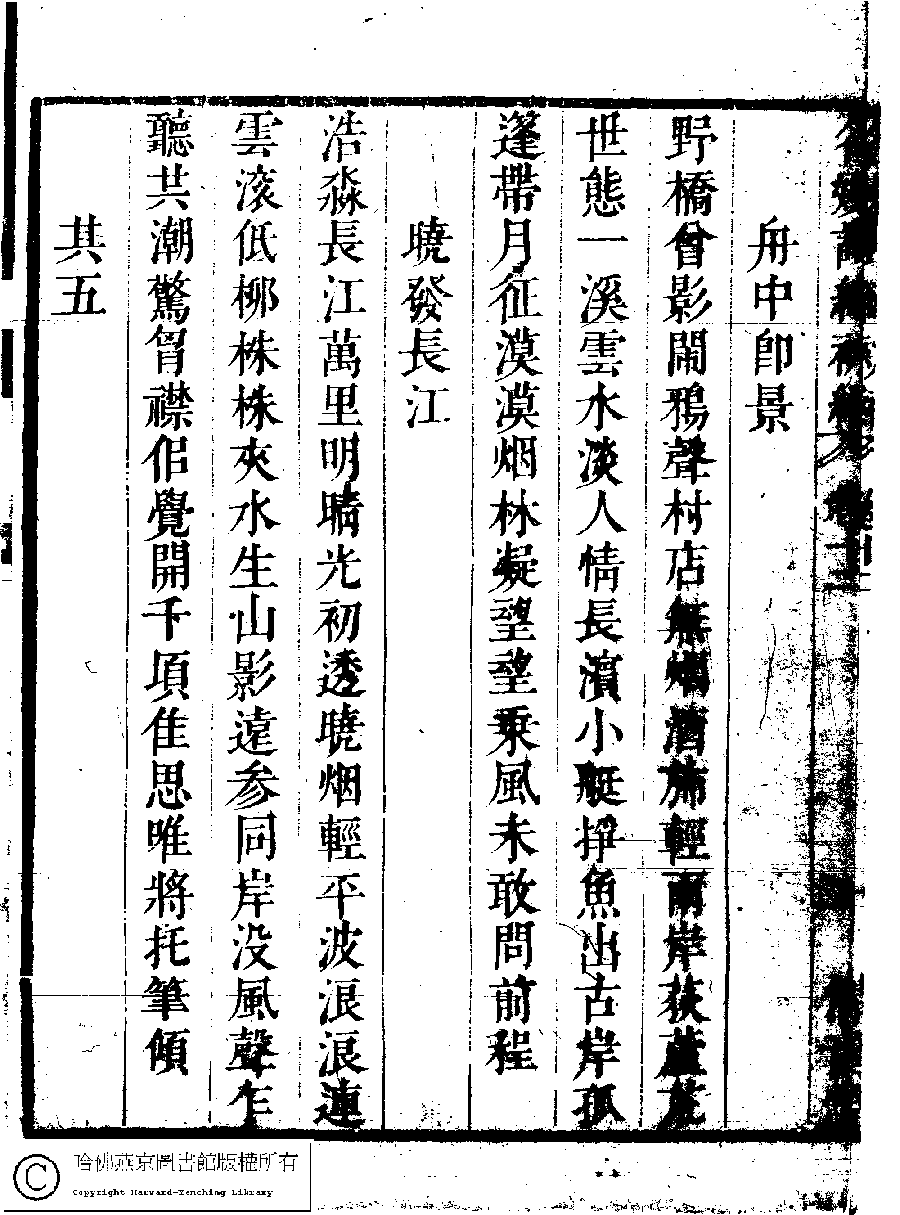 舟中卽景
野橋曾影鬧鴉聲村店無烟酒斾輕兩岸荻蘆花
世態一溪雲水淡人情長濱小艇掙魚出古岸孤
篷帶月征漠漠烟林凝望望乗風未敢問前程
曉發長江
浩淼長江萬里明晴光初透曉烟輕平波浪浪連
雲滚低柳株株夾水生山影遠参同岸没風聲乍
聽共潮驚胷襟侣覺開千項佳思唯將托筆傾
其五
哈佛燕京圖書館版權所有
Copyright Harvard-Yenching Library